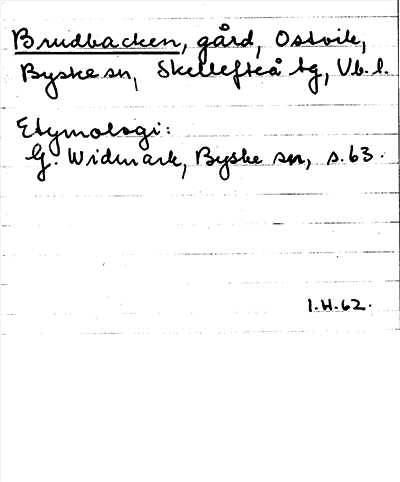 Brudbacken, gård, Ostvik,
Byske sn, Skellefteå tg, Vb. l.
Etymologi:
G. Widmark, Byske sn, s. 63.
I.H. 62.